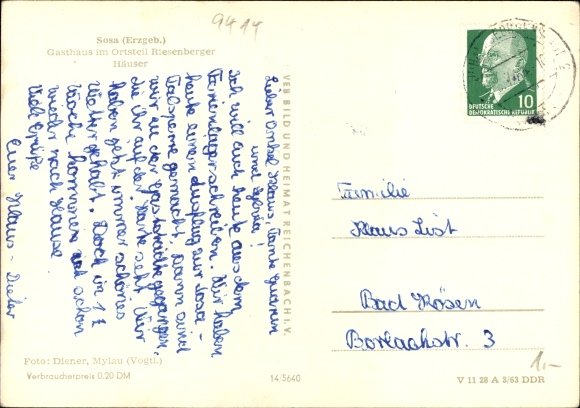 9414
Sosa (Erzgeb.)
Gasthaus im Ortsteil Riesenberger
Häuser
Lieber Onkel Klaus, Tante
und
Ich will Euch heute aus dem
Ferienlager schreiben. Wir haben
heute einen Ausflug zur Sosa-
Talsperre gemacht. Dann sind
wir in der Gaststätte gegangen,
die ihr auf der Karte seht. Wir
haben jetzt immer schönes
Wetter gehabt. Doch in 1
Woche kommen wir schon
wieder nach Hause.
Viele Grüße
Euer Klaus-Dieter
VEB BILD UND HEIMAT REICHENBACH I. V.
DEUTSCHE
DEMOKRATISCHE REPUBLIK
10
Familie
Klaus List
Bad Kösen
Borlachstr. 3
1.-
Foto: Diener, Mylau (Vogtl.)
Verbraucherpreis 0.20 DM
14/5640
V 11 28 A 3/63 DDR